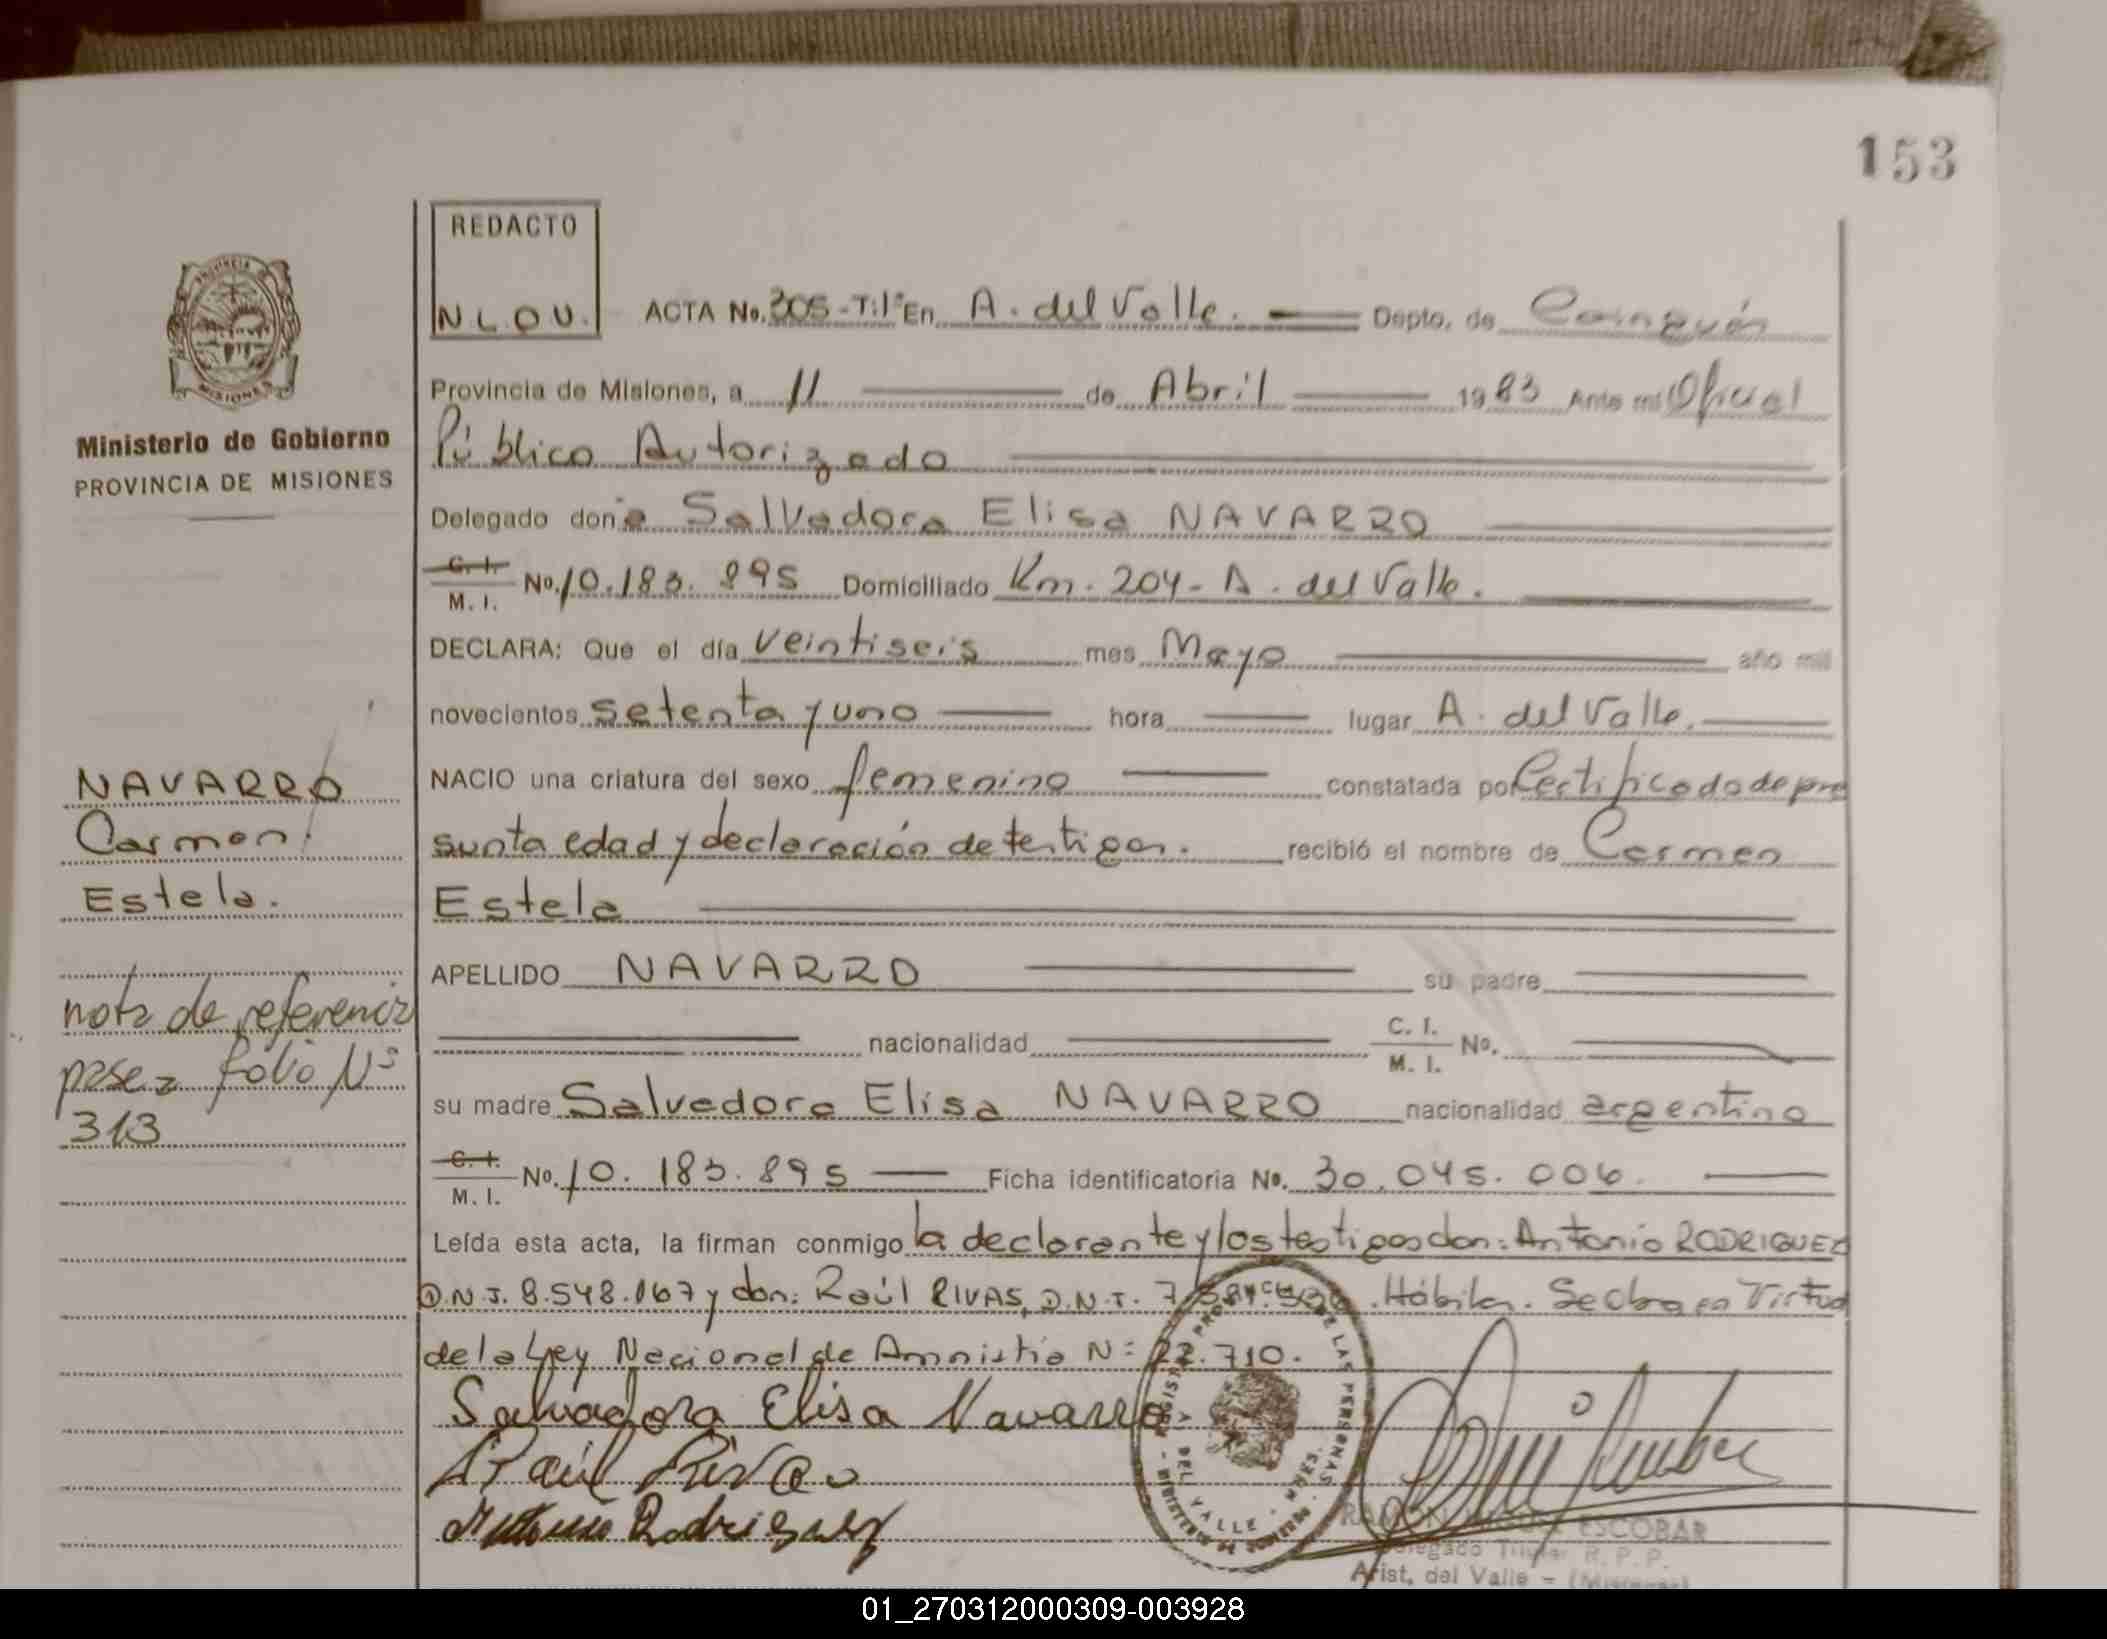 153
REDACTO
N.L.O.U.
ACTA No. 305-T:1º En A. del Valle. Depto. de Cainguás
Provincia de Misiones, a 11 de Abril 1983 Ante mi Oficial
Público Autorizado
Delegado doña Salvadora Elisa NAVARRO
C. I. M. I. No. 10.183.895 Domiciliado Km. 204- A. del Valle.
DECLARA: Que el día veintiseis mes Mayo año mil
novecientos setenta y uno hora lugar A. del Valle.
NACIO una criatura del sexo femenino constatada por Certificado de pre
sunta edad y declaración de testigos. recibió el nombre de Carmen
Estela
APELLIDO NAVARRO su padre
nacionalidad C. I. M. I. No.
su madre Salvadora Elisa NAVARRO nacionalidad argentina
C. I. M. I. No. 10.183.895 Ficha identificatoria No. 30.045.006.
Leída esta acta, la firman conmigo la declarante y los testigos don: Antonio RODRIGUEZ
D.N.I. 8.548.167 y don: Raúl RIVAS, D.N.I. Hábiles. Se labra en Virtud
de la Ley Nacional de Amnistía Nº 22.710.
Salvadora Elisa Navarro
Raúl Rivas
Antonio Rodriguez
PROVINCIA
MISIONES
Ministerio de Gobierno
PROVINCIA DE MISIONES
NAVARRO
Carmen
Estela.
nota de referencia
pase a folio Nº
313
DE LAS PERSONAS
DEL VALLE
RAMON ESCOBAR
Delegado Titular R. P. P.
Arist. del Valle - (Misiones)
01_270312000309-003928